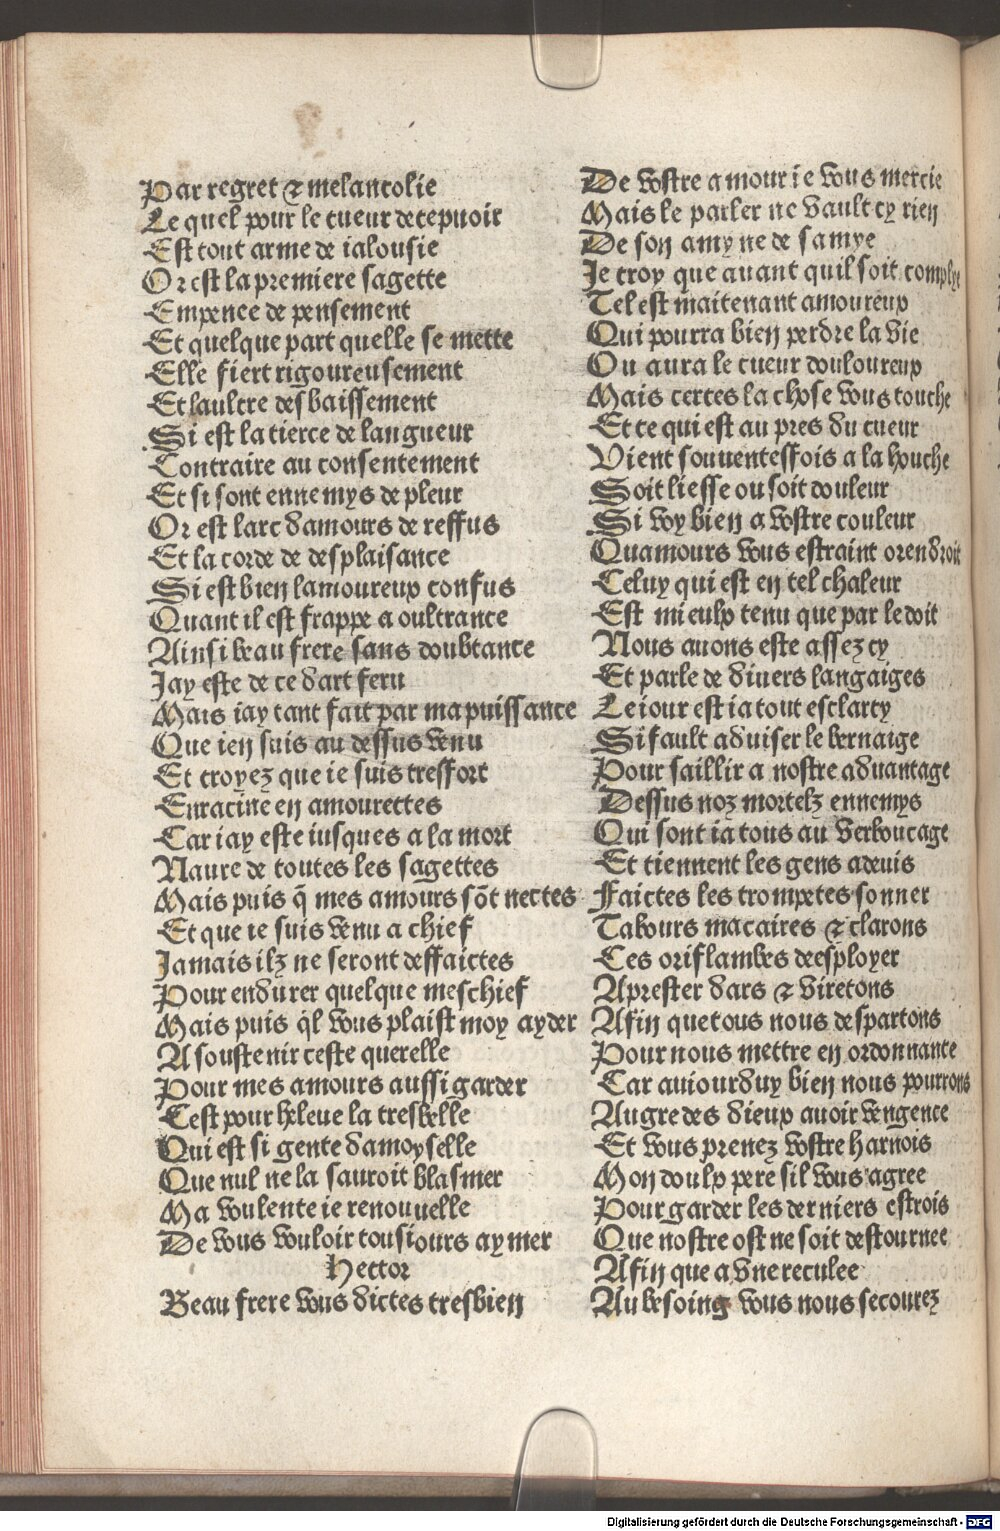 Par regret & melancolie
Le quel pour le cueur decepuoir
Est tout arme de ialousie
Or est la premiere sagette
Empence de pensement
Et quelque part quelle se mette
Elle fiert rigoureusement
Et laultre desbaissement
Si est la tierce de langueur
Contraire au consentement
Et si sont ennemys de pleur
Or est larc damours de reffus
Et la corde de desplaisance
Si est bien lamoureux confus
Quant il est frappe a oultrance
Ainsi beau frere sans doubtance
Jay este de ce dart feru
Mais iay tant fait par ma puissance
Que ien suis au dessus venu
Et croyez que ie suis tresfort
Enracine en amourettes
Car iay este iusques a la mort
Naure de toutes les sagettes
Mais puis q̄ mes amours sōt nectes
Et que ie suis venu a chief
Jamais ilz ne seront deffaictes
Pour endurer quelque meschief
Mais puis q̇l vous plaist moy ayder
A soustenir ceste querelle
Pour mes amours aussi garder
Cest pour heleue la tresbelle
Qui est si gente damoyselle
Que nul ne la sauroit blasmer
Ma voulente ie renouuelle
De vous vouloir tousiours aymer
Hector
Beau frere vous dictes tresbien
De vostre amour ie vous mercie
Mais le parler ne vault cy rien
De son amy ne de samye
Je croy que auant quil soit complye
Tel est maitenant amoureux
Qui pourra bien perdre la vie
Ou aura le cueur douloureux
Mais certes la chose vous touche
Et ce qui est au pres du cueur
Vient souuenteffois a la bouche
Soit liesse ou soit douleur
Si voy bien a vostre couleur
Quamours vous estraint orendroit
Celuy qui est en tel chaleur
Est mieulx tenu que par le doit
Nous auons este assez cy
Et parle de diuers langaiges
Le iour est ia tout esclarcy
Si fault aduiser le bernaige
Pour saillir a nostre aduantage
Dessus noz mortelz ennemys
Qui sont ia tous au verboucage
Et tiennent les gens a deuis
Faictes les trompetes sonner
Tabours macaires & clarons
Ces oriflambes deesployer
Aprester dars & viretons
Afin que tous nous despartons
Pour nous mettre en ordonnance
Car auiourduy bien nous pourrons
Au gre des dieux auoir vengence
Et vous prenez vostre harnois
Mon doulx pere sil vous agree
Pour garder les derniers estrois
Que nostre ost ne soit destournee
Afin que a vne reculee
Au besoing vous nous secourez
Digitalisierung gefördert durch die Deutsche Forschungsgemeinschaft - DFG